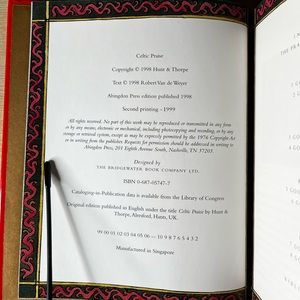 Celtic Praise
Copyright © 1998 Hunt & Thorpe
Text © 1998 Robert Van de Weyer
Abingdon Press edition published 1998
Second printing – 1999
All rights reserved. No part of this work may be reproduced or transmitted in any form or
by any means, electronic or mechanical, including photocopying and recording, or by any
storage or retrieval system, except as may be expressly permitted by the 1976 Copyright Act
or in writing from the publisher. Requests for permission should be addressed in writing to
Abingdon Press, 201 Eighth Avenue South, Nashville, TN 37203.
Designed by
THE BRIDGEWATER BOOK COMPANY LTD.
ISBN 0-687-05747-7
Cataloging-in-Publication data is available from the Library of Congress
Original edition published in English under the title Celtic Praise by Hunt &
Thorpe, Alresford, Hants, UK.
99 00 01 02 03 04 05 06 — 10 9 8 7 6 5 4 3 2
Manufactured in Singapore